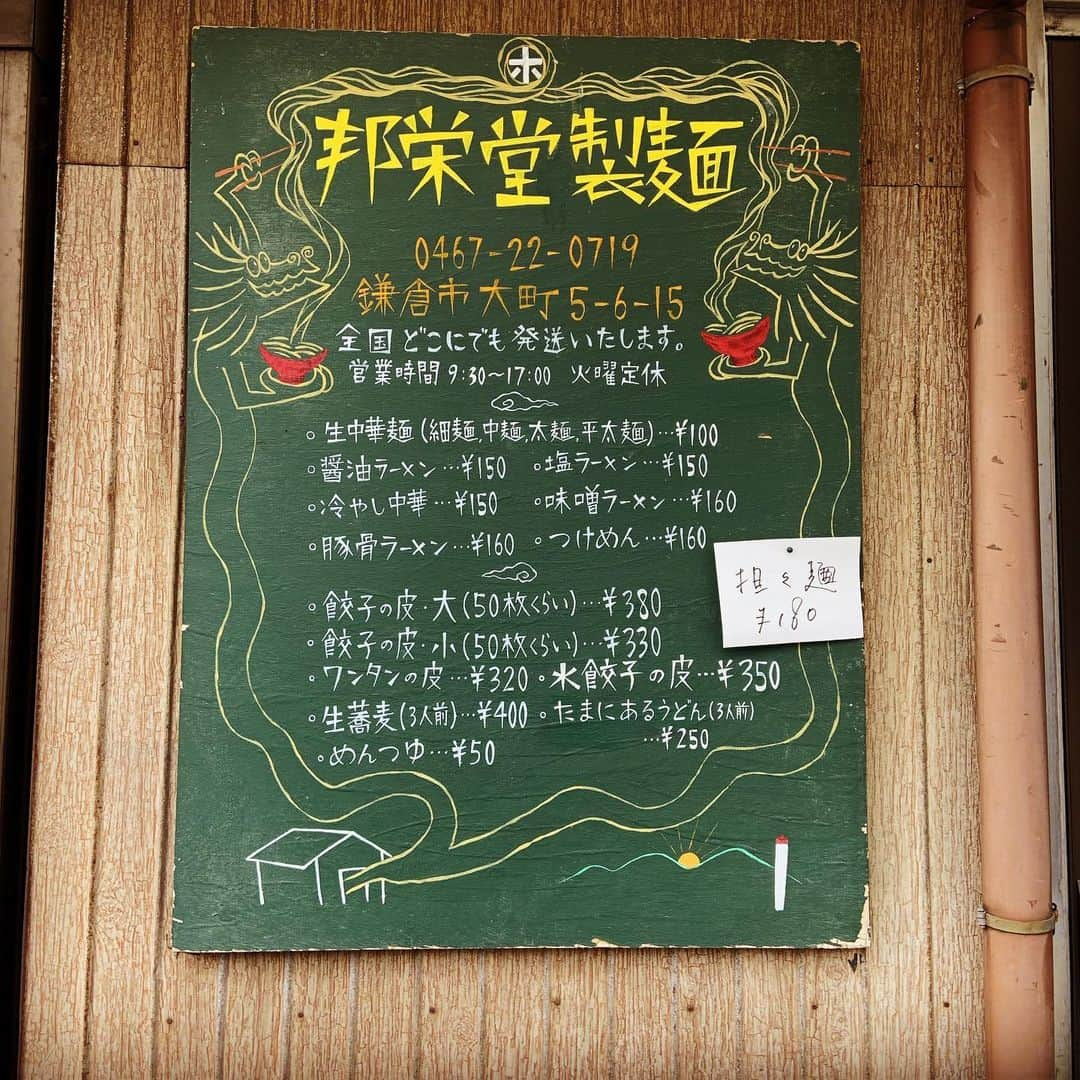 ホ
邦栄堂製麺
0467-22-0719
鎌倉市大町5-6-15
全国どこにでも発送いたします。
営業時間9:30〜17:00 火曜定休
。生中華麺(細麺,中麺,太麺,平太麺)…¥100
。醤油ラーメン…¥150 。塩ラーメン…¥150
。冷やし中華…¥150 。味噌ラーメン…¥160
。豚骨ラーメン…¥160 。つけめん…¥160
担々麺
¥180
。餃子の皮・大(50枚くらい)…¥380
。餃子の皮・小(50枚くらい)…¥330
。ワンタンの皮…¥320 。水餃子の皮…¥350
。生蕎麦(3人前)…¥400 。たまにあるうどん(3人前)
…¥250
。めんつゆ…¥50